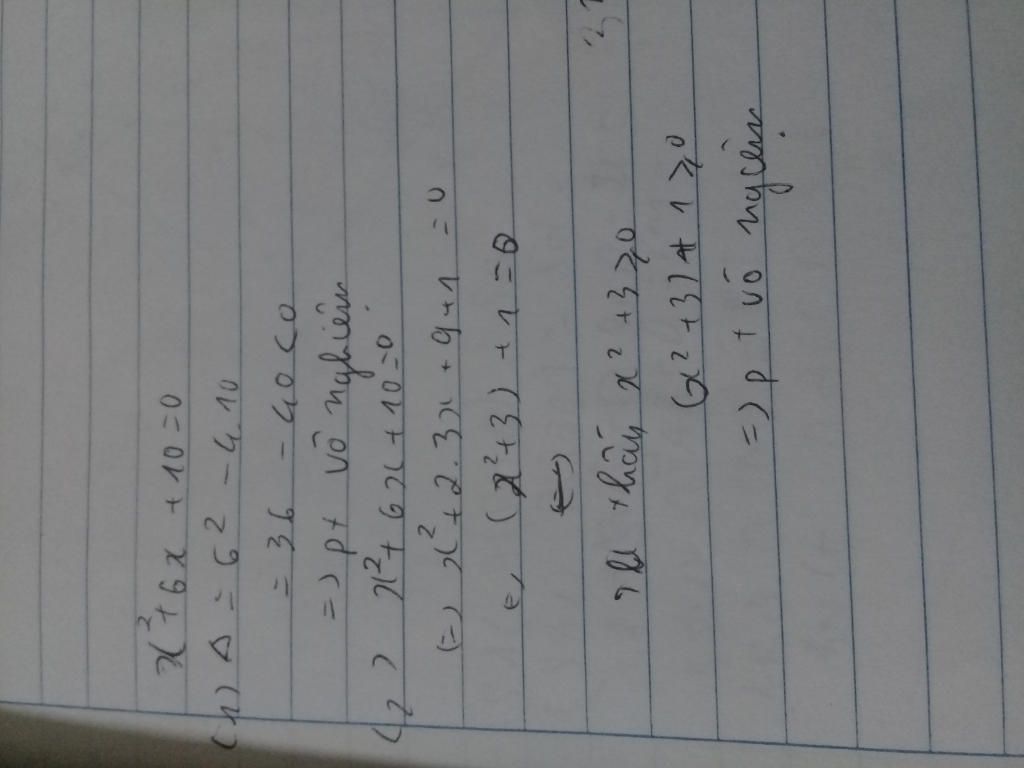 x² + 6x + 10 = 0
(1) Δ = 6² - 4.10
= 36 - 40 < 0
=) pt vô nghiệm
(2) x² + 6x + 10 = 0
(=) x² + 2.3x + 9 + 1 = 0
(x² + 3) + 1 = 0
thấy x² + 3 ≥ 0
(x² + 3) + 1 ≥ 0
=) pt vô nghiệm.